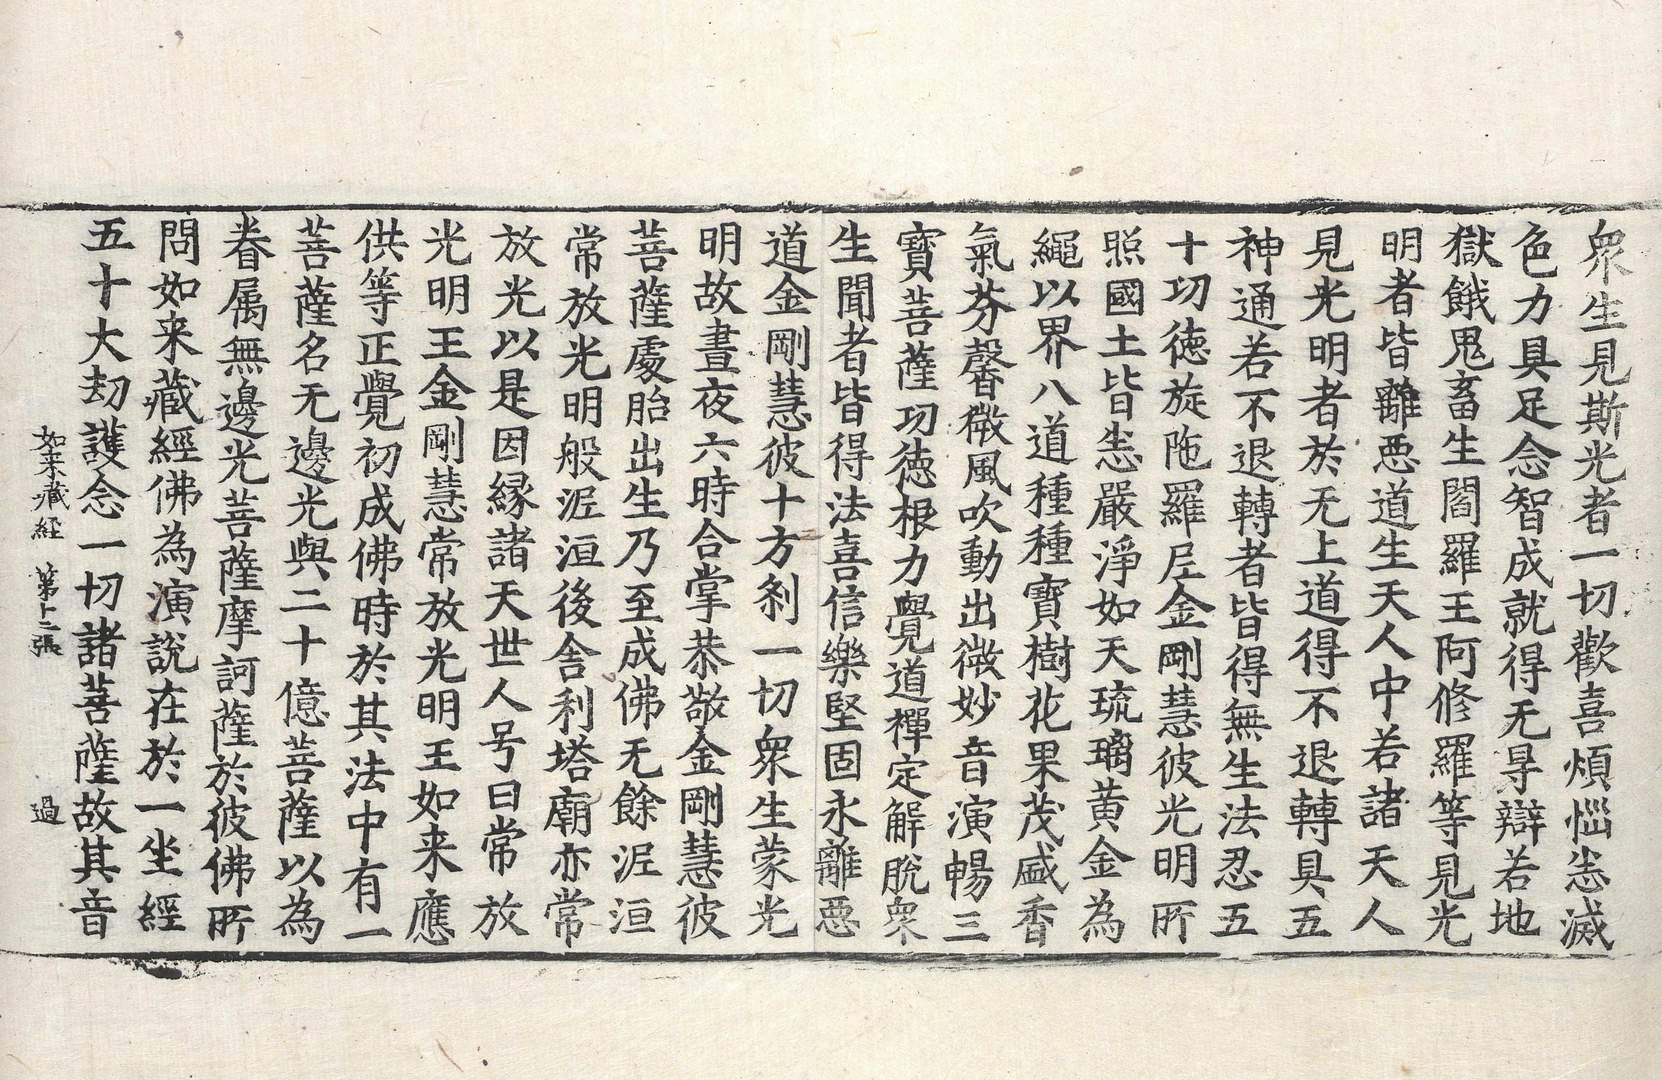 衆生見斯光者一切歡喜煩惱恚滅
色力具足念智成就得无㝵辯若地
獄餓鬼畜生閻羅王阿修羅等見光
明者皆離惡道生天人中若諸天人
見光明者於无上道得不退轉具五
神通若不退轉者皆得無生法忍五
十功徳旋陁羅尼金剛慧彼光明所
照國土皆悉嚴淨如天琉璃黄金為
繩以界八道種種寶樹花果茂盛香
氣芬馨微風吹動出微妙音演暢三
寶菩薩功徳根力覺道禪定解脫衆
生聞者皆得法喜信樂堅固永離惡
道金剛慧彼十方刹一切衆生蒙光
明故晝夜六時合掌恭敬金剛慧彼
菩薩處胎出生乃至成佛无餘泥洹
常放光明般泥洹後舍利塔廟亦常
放光以是因緣諸天世人号曰常放
光明王金剛慧常放光明王如来應
供等正覺初成佛時於其法中有一
菩薩名无邊光與二十億菩薩以為
眷属無邊光菩薩摩訶薩於彼佛所
問如来藏經佛為演說在於一坐經
五十大刧護念一切諸菩薩故其音
如来藏経 第十二張 過